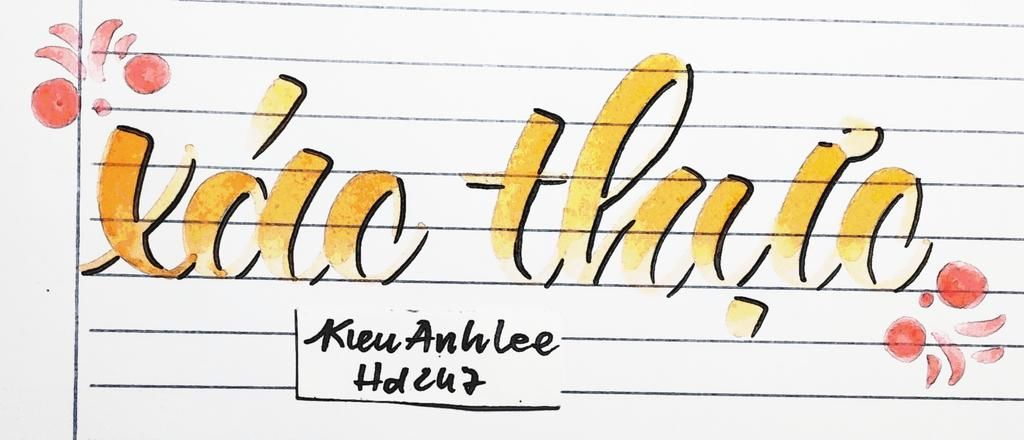 xác thực
KieuAnhlee
Hd247